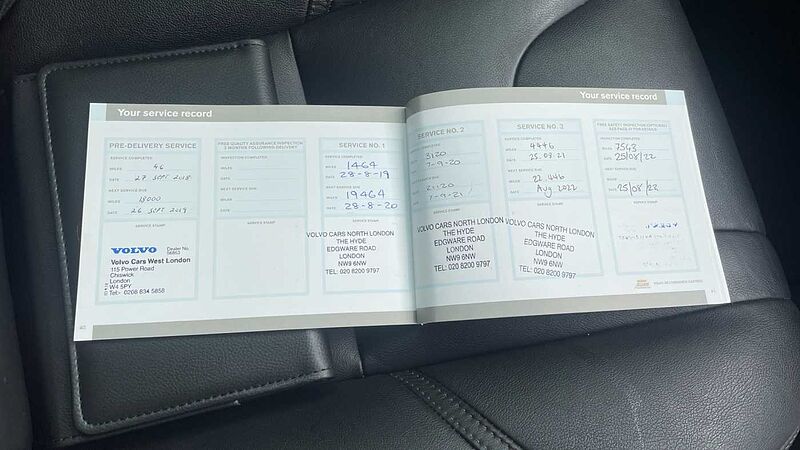 Your service record
PRE-DELIVERY SERVICE
SERVICE COMPLETED
MILES 46
DATE 27 SEPT 2018
NEXT SERVICE DUE
MILES 18000
DATE 26 SEPT 2019
SERVICE STAMP
VOLVO
Dealer No.
Volvo Cars West London
115 Power Road
Chiswick
London
W4 5PY
Tel:- 0208 834 5858
FREE QUALITY ASSURANCE INSPECTION
3 MONTHS FOLLOWING DELIVERY
INSPECTION COMPLETED
MILES
DATE
NEXT SERVICE DUE
MILES
DATE
SERVICE STAMP
SERVICE NO. 1
SERVICE COMPLETED
MILES 1464
DATE 28-8-19
NEXT SERVICE DUE
MILES 19464
DATE 28-8-20
SERVICE STAMP
VOLVO CARS NORTH LONDON
THE HYDE
EDGWARE ROAD
LONDON
NW9 6NW
TEL: 020 8200 9797
Your service record
SERVICE NO. 2
SERVICE COMPLETED
MILES 3120
DATE 7-9-20
NEXT SERVICE DUE
MILES 21120
DATE 7-9-21
SERVICE STAMP
VOLVO CARS NORTH LONDON
THE HYDE
EDGWARE ROAD
LONDON
NW9 6NW
TEL: 020 8200 9797
SERVICE NO. 3
SERVICE COMPLETED
MILES 4446
DATE 25.08.21
NEXT SERVICE DUE
MILES 22 446
DATE Aug 2022
SERVICE STAMP
VOLVO CARS NORTH LONDON
THE HYDE
EDGWARE ROAD
LONDON
NW9 6NW
TEL: 020 8200 9797
FREE SAFETY INSPECTION (OPTIONAL)
INSPECTION COMPLETED
MILES 7543
DATE 25/08/22
NEXT SERVICE DUE
MILES
DATE 25/08/22
SERVICE STAMP